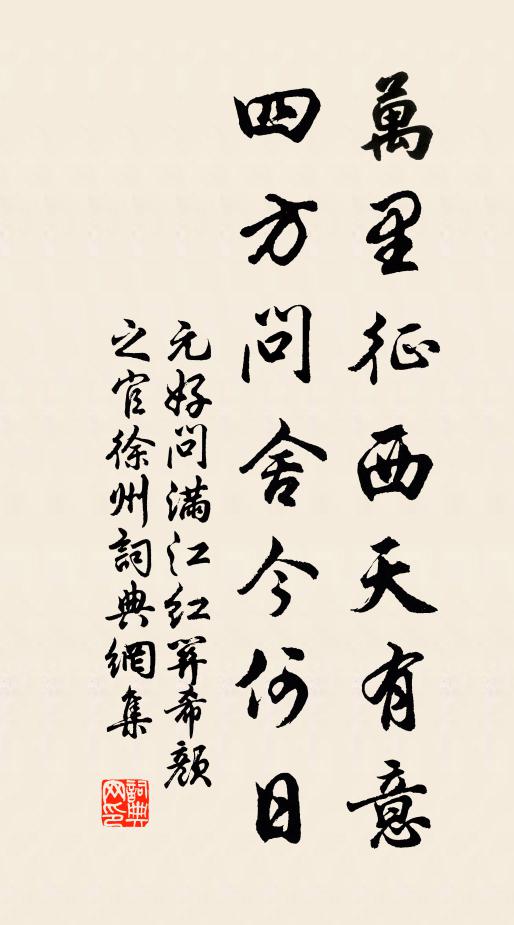 萬里征西天有意
四方問舍今何日
元好問滿江紅羿希顏
之官徐州詞典網集
詞典网印